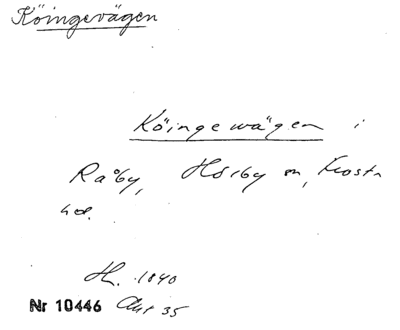 Köingevägen
Köingewägen i
Råby, Hörby sn, Frosta
hd.
H. 1840
Nr 10446 Akt 35